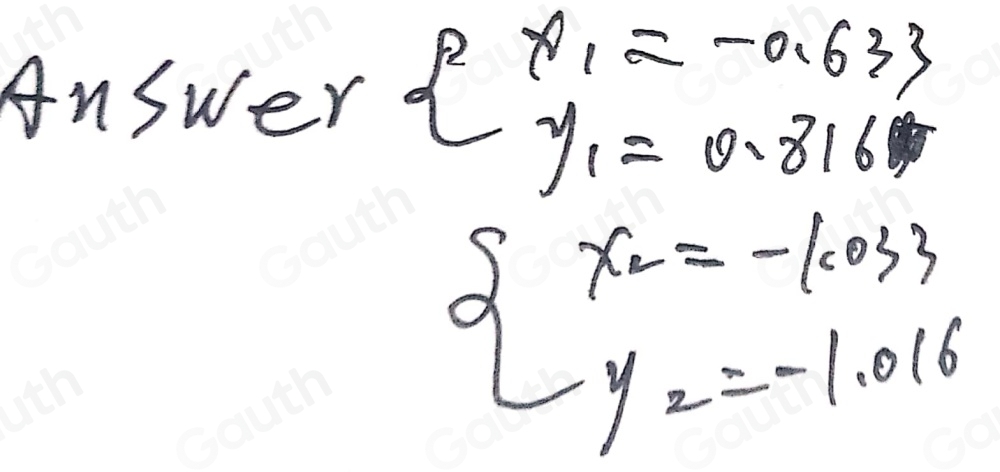 Answer { x₁ = -0.633
y₁ = 0.816
{ x₂ = -1.033
y₂ = -1.016
Gauth